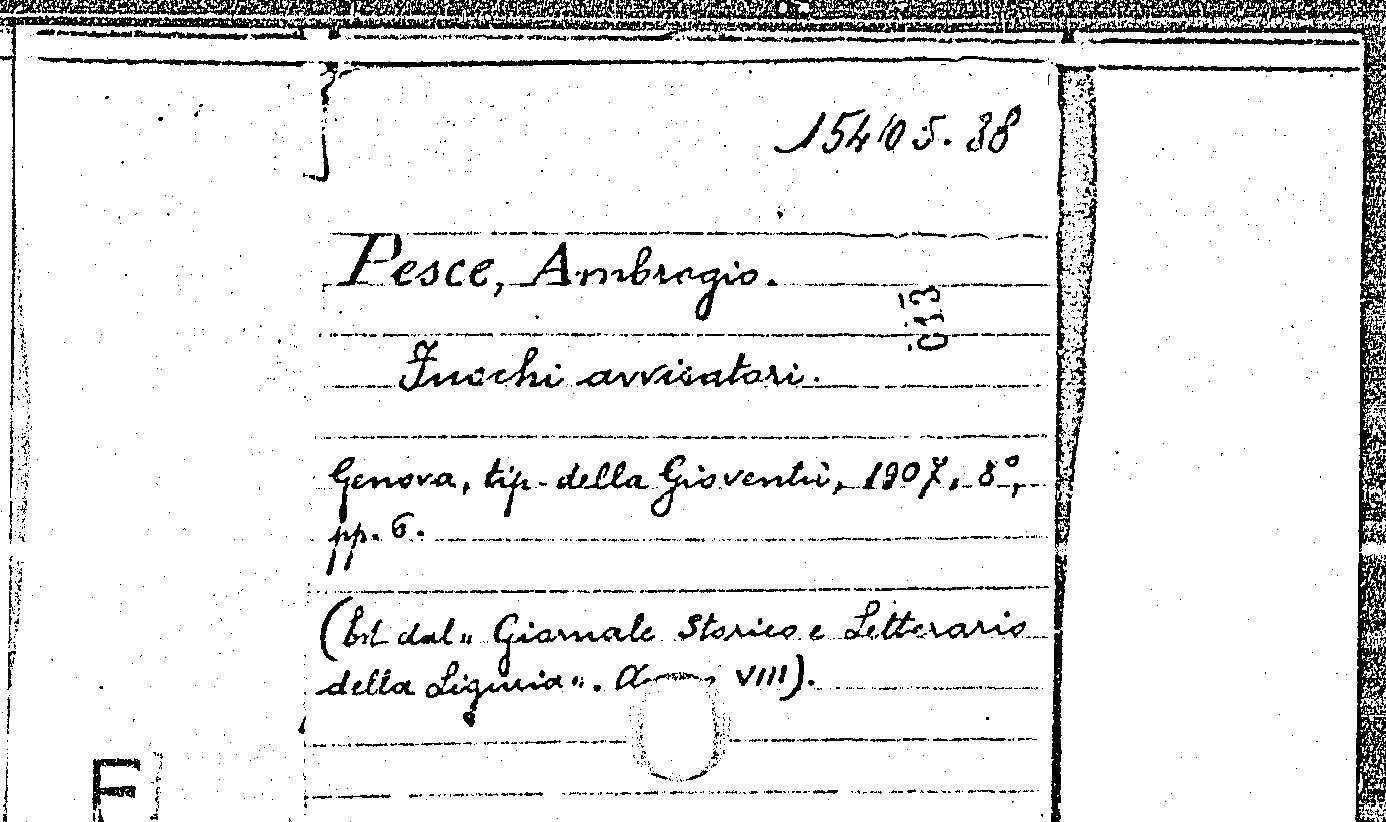 15405.38
Pesce, Ambrogio.
C13
Fuochi avvisatori.
Genova, tip. della Gioventù, 1907, 8°,
pp. 6.
(Est. dal „ Giornale Storico e Letterario
della Liguria". VIII).
F